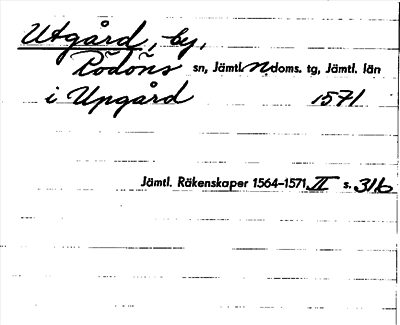 Utgård, by,
Rödöns sn, Jämtl. n. doms. tg, Jämtl. län
i Upgård 1571
Jämtl. Räkenskaper 1564–1571 II s. 31b